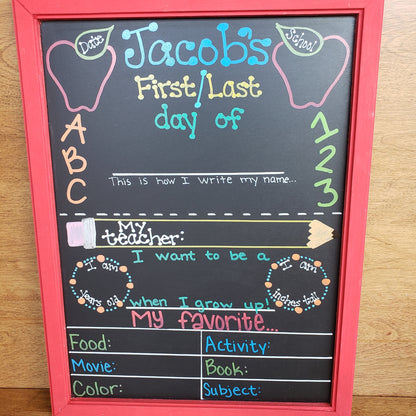 Jacob's
Date
School
First/Last
day of
A
B
C
1
2
3
This is how I write my name...
My
teacher:
I want to be a
I am
years old
I am
inches tall
when I grow up!
My favorite...
Food:
Activity:
Movie:
Book:
Color:
Subject: